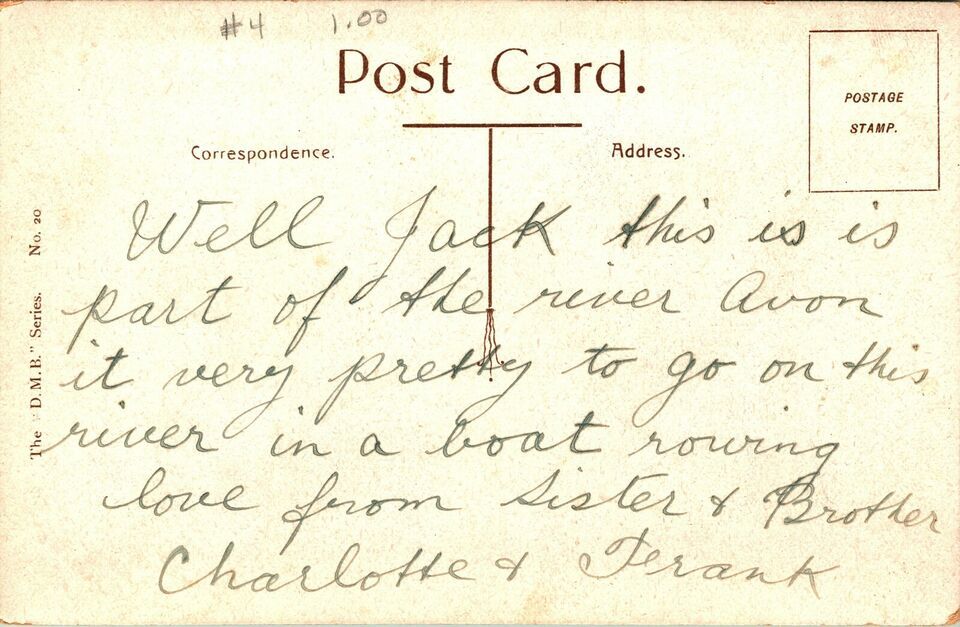 #4 1.00
Post Card.
POSTAGE
STAMP.
Correspondence.
Address.
The "D.M.B." Series. No. 20
Well Jack this is is
part of the river Avon
it very pretty to go on this
river in a boat rowing
love from Sister & Brother
Charlotte & Frank